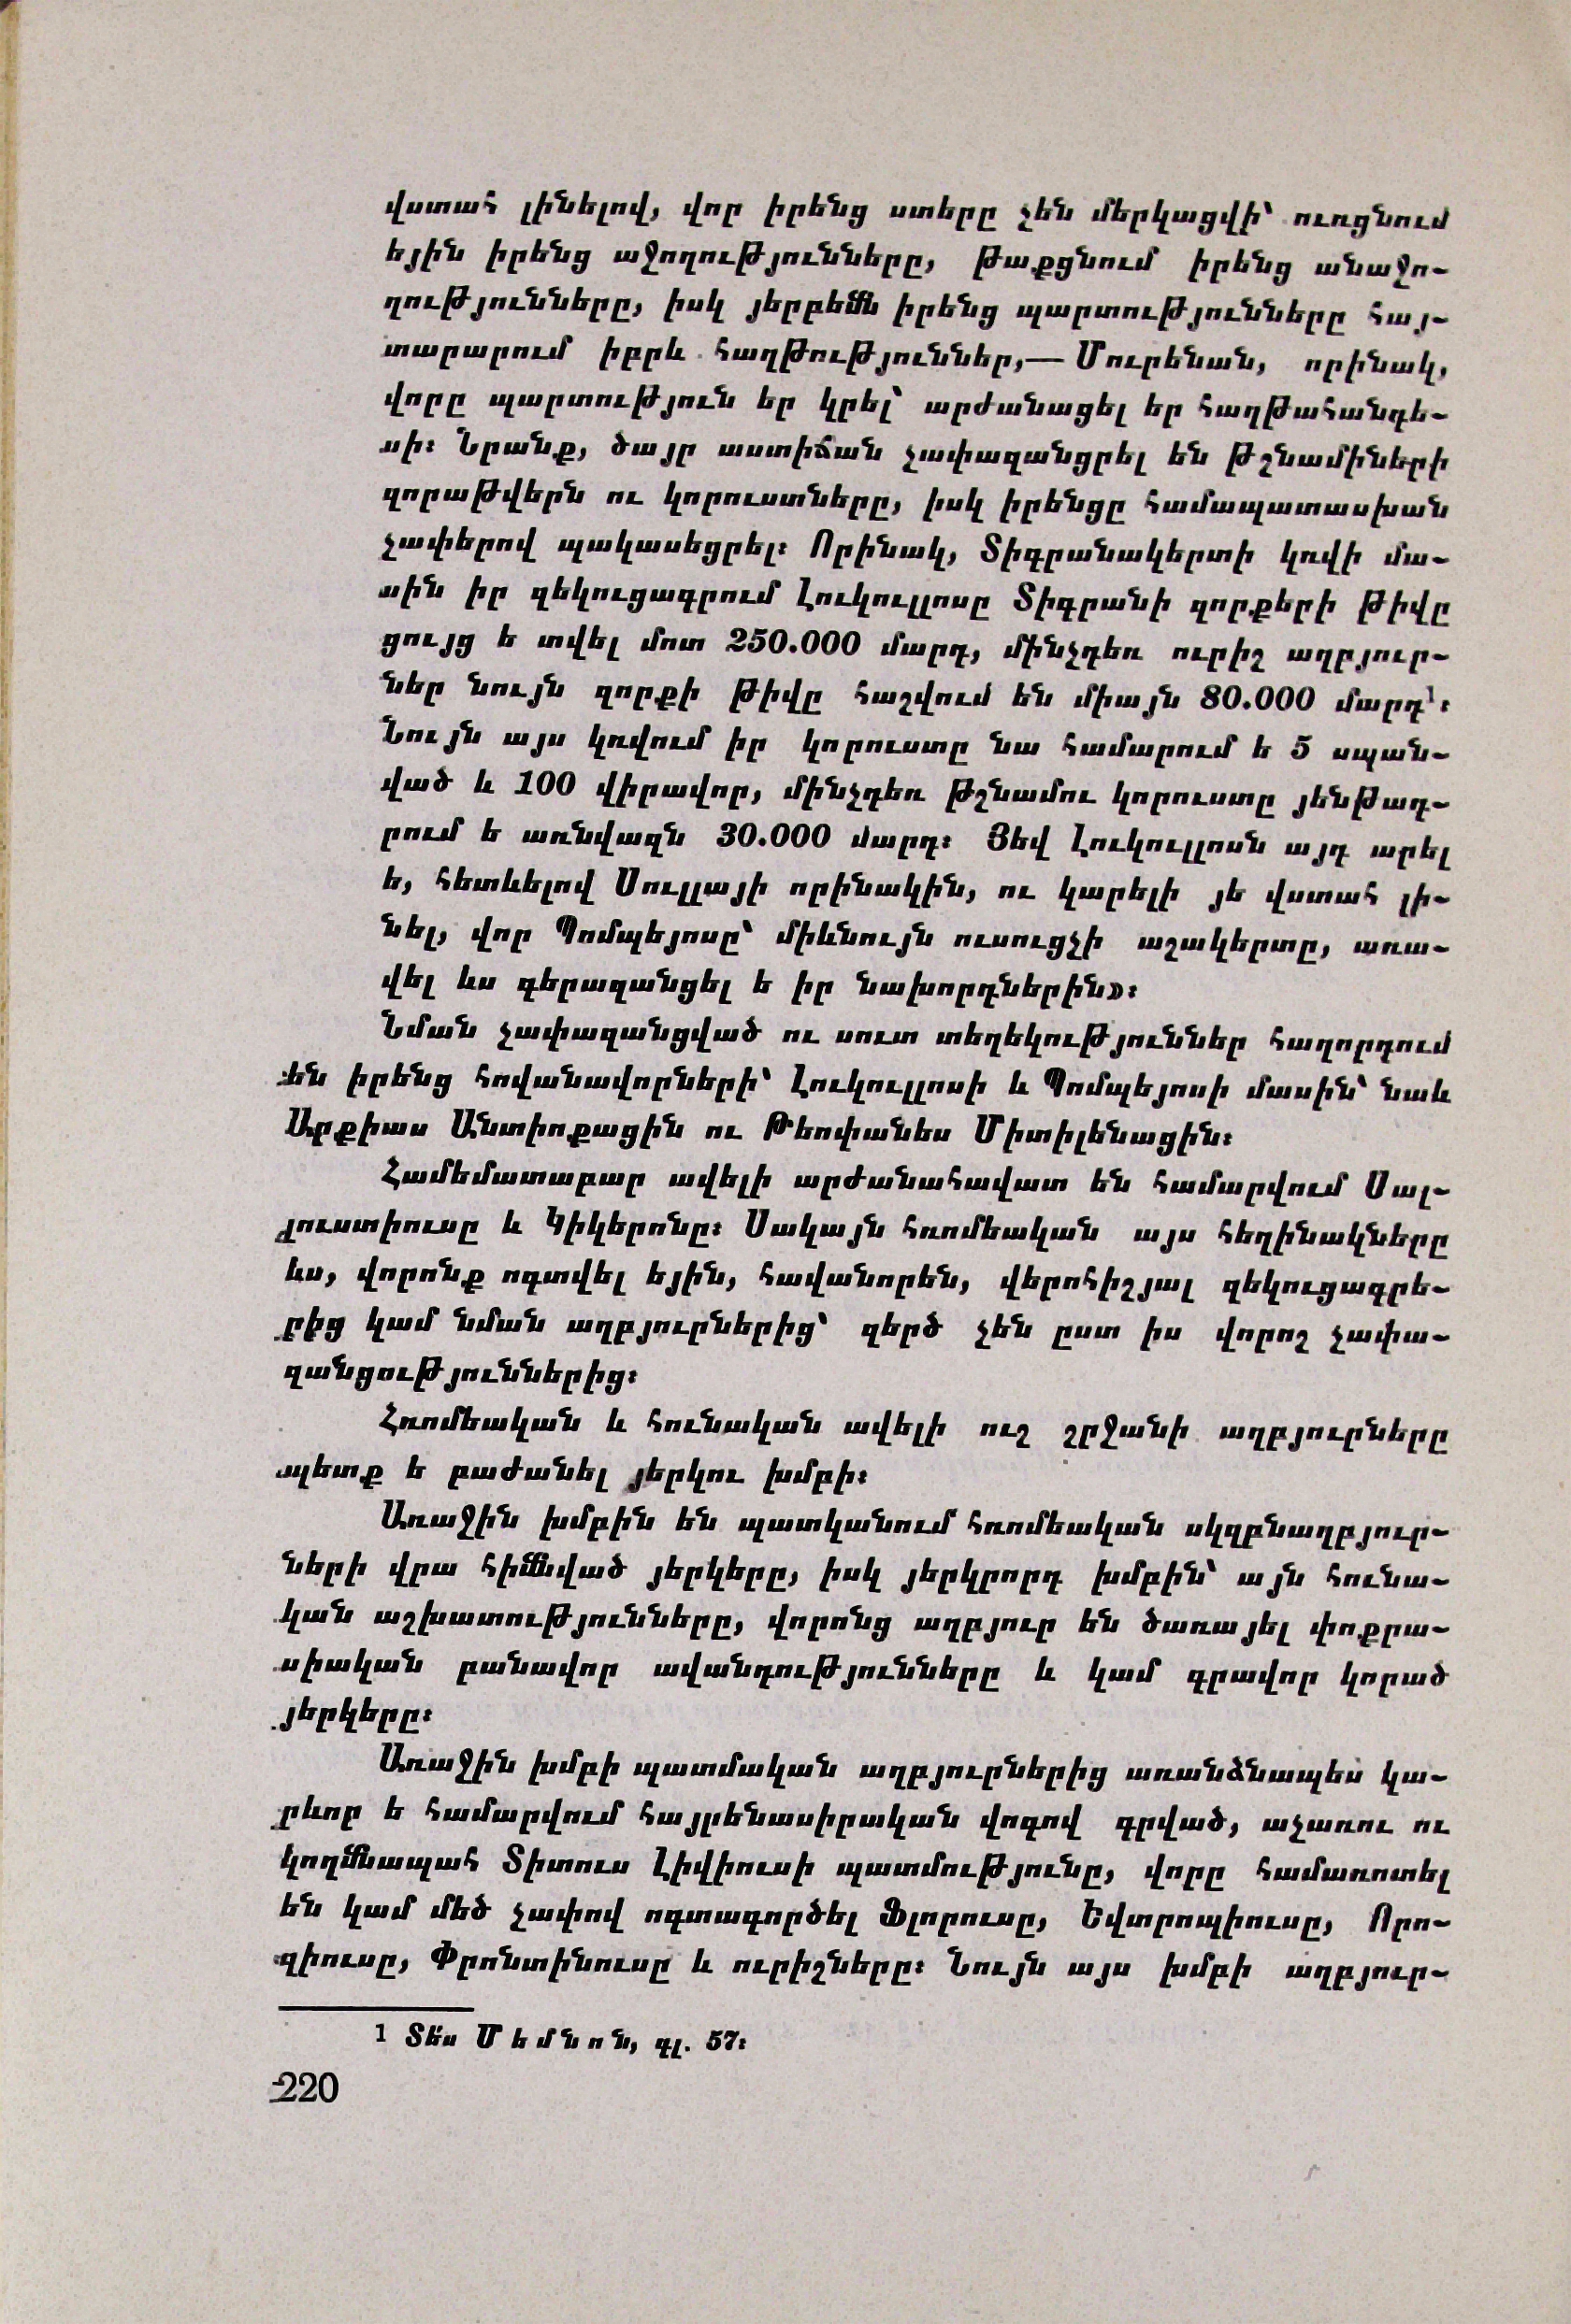 վստահ լինելով, վոր իրենց ստերը չեն մերկացվի՝ ուռցնում
եյին իրենց աջողությունները, թաքցնում իրենց անաջո-
ղությունները, իսկ յերբեմն իրենց պարտությունները հայ-
տարարում իբրև հաղթություններ,— Մուրենան, որինակ,
վորը պարտություն եր կրել՝ արժանացել եր հաղթահանդե-
սի։ Նրանք, ծայր աստիճան չափազանցրել են թշնամիների
զորաթվերն ու կորուստները, իսկ իրենցը համապատասխան
չափերով պակասեցրել։ Որինակ, Տիգրանակերտի կռվի մա-
սին իր զեկուցագրում Լուկուլլոսը Տիգրանի զորքերի թիվը
ցույց ե տվել մոտ 250.000 մարդ, մինչդեռ ուրիշ աղբյուր-
ներ նույն զորքի թիվը հաշվում են միայն 80.000 մարդ¹։
Նույն այս կռվում իր կորուստը նա համարում ե 5 սպան-
ված և 100 վիրավոր, մինչդեռ թշնամու կորուստը յենթադ-
րում ե առնվազն 30.000 մարդ։ Յեվ Լուկուլլոսն այդ արել
ե, հետևելով Սուլլայի որինակին, ու կարելի յե վստահ լի-
նել, վոր Պոմպեյոսը՝ միևնույն ուսուցչի աշակերտը, առա-
վել ևս գերազանցել ե իր նախորդներին»։
Նման չափազանցված ու սուտ տեղեկություններ հաղորդում
են իրենց հովանավորների՝ Լուկուլլոսի և Պոմպեյոսի մասին՝ նաև
Արքիաս Անտիոքացին ու Թեոփանես Միտիլենացին։
Համեմատաբար ավելի արժանահավատ են համարվում Սալ-
լուստիուսը և Կիկերոնը։ Սակայն հռոմեական այս հեղինակները
ևս, վորոնք ոգտվել եյին, հավանորեն, վերոհիշյալ զեկուցագրե-
րից կամ նման աղբյուրներից՝ զերծ չեն ըստ իս վորոշ չափա-
զանցություններից։
Հռոմեական և հունական ավելի ուշ շրջանի աղբյուրները
պետք ե բաժանել յերկու խմբի։
Առաջին խմբին են պատկանում հռոմեական սկզբնաղբյուր-
ների վրա հիմնված յերկերը, իսկ յերկրորդ խմբին՝ այն հունա-
կան աշխատությունները, վորոնց աղբյուր են ծառայել փոքրա-
սիական բանավոր ավանդությունները և կամ գրավոր կորած
յերկերը։
Առաջին խմբի պատմական աղբյուրներից առանձնապես կա-
րևոր ե համարվում հայրենասիրական վոգով գրված, աչառու ու
կողմնապահ Տիտուս Լիվիուսի պատմությունը, վորը համառոտել
են կամ մեծ չափով ոգտագործել Ֆլորուսը, Եվտրոպիուսը, Որո-
զիուսը, Փրոնտինուսը և ուրիշները։ Նույն այս խմբի աղբյուր-
1 Տե՛ս Մեմնոն, գլ. 57։
220